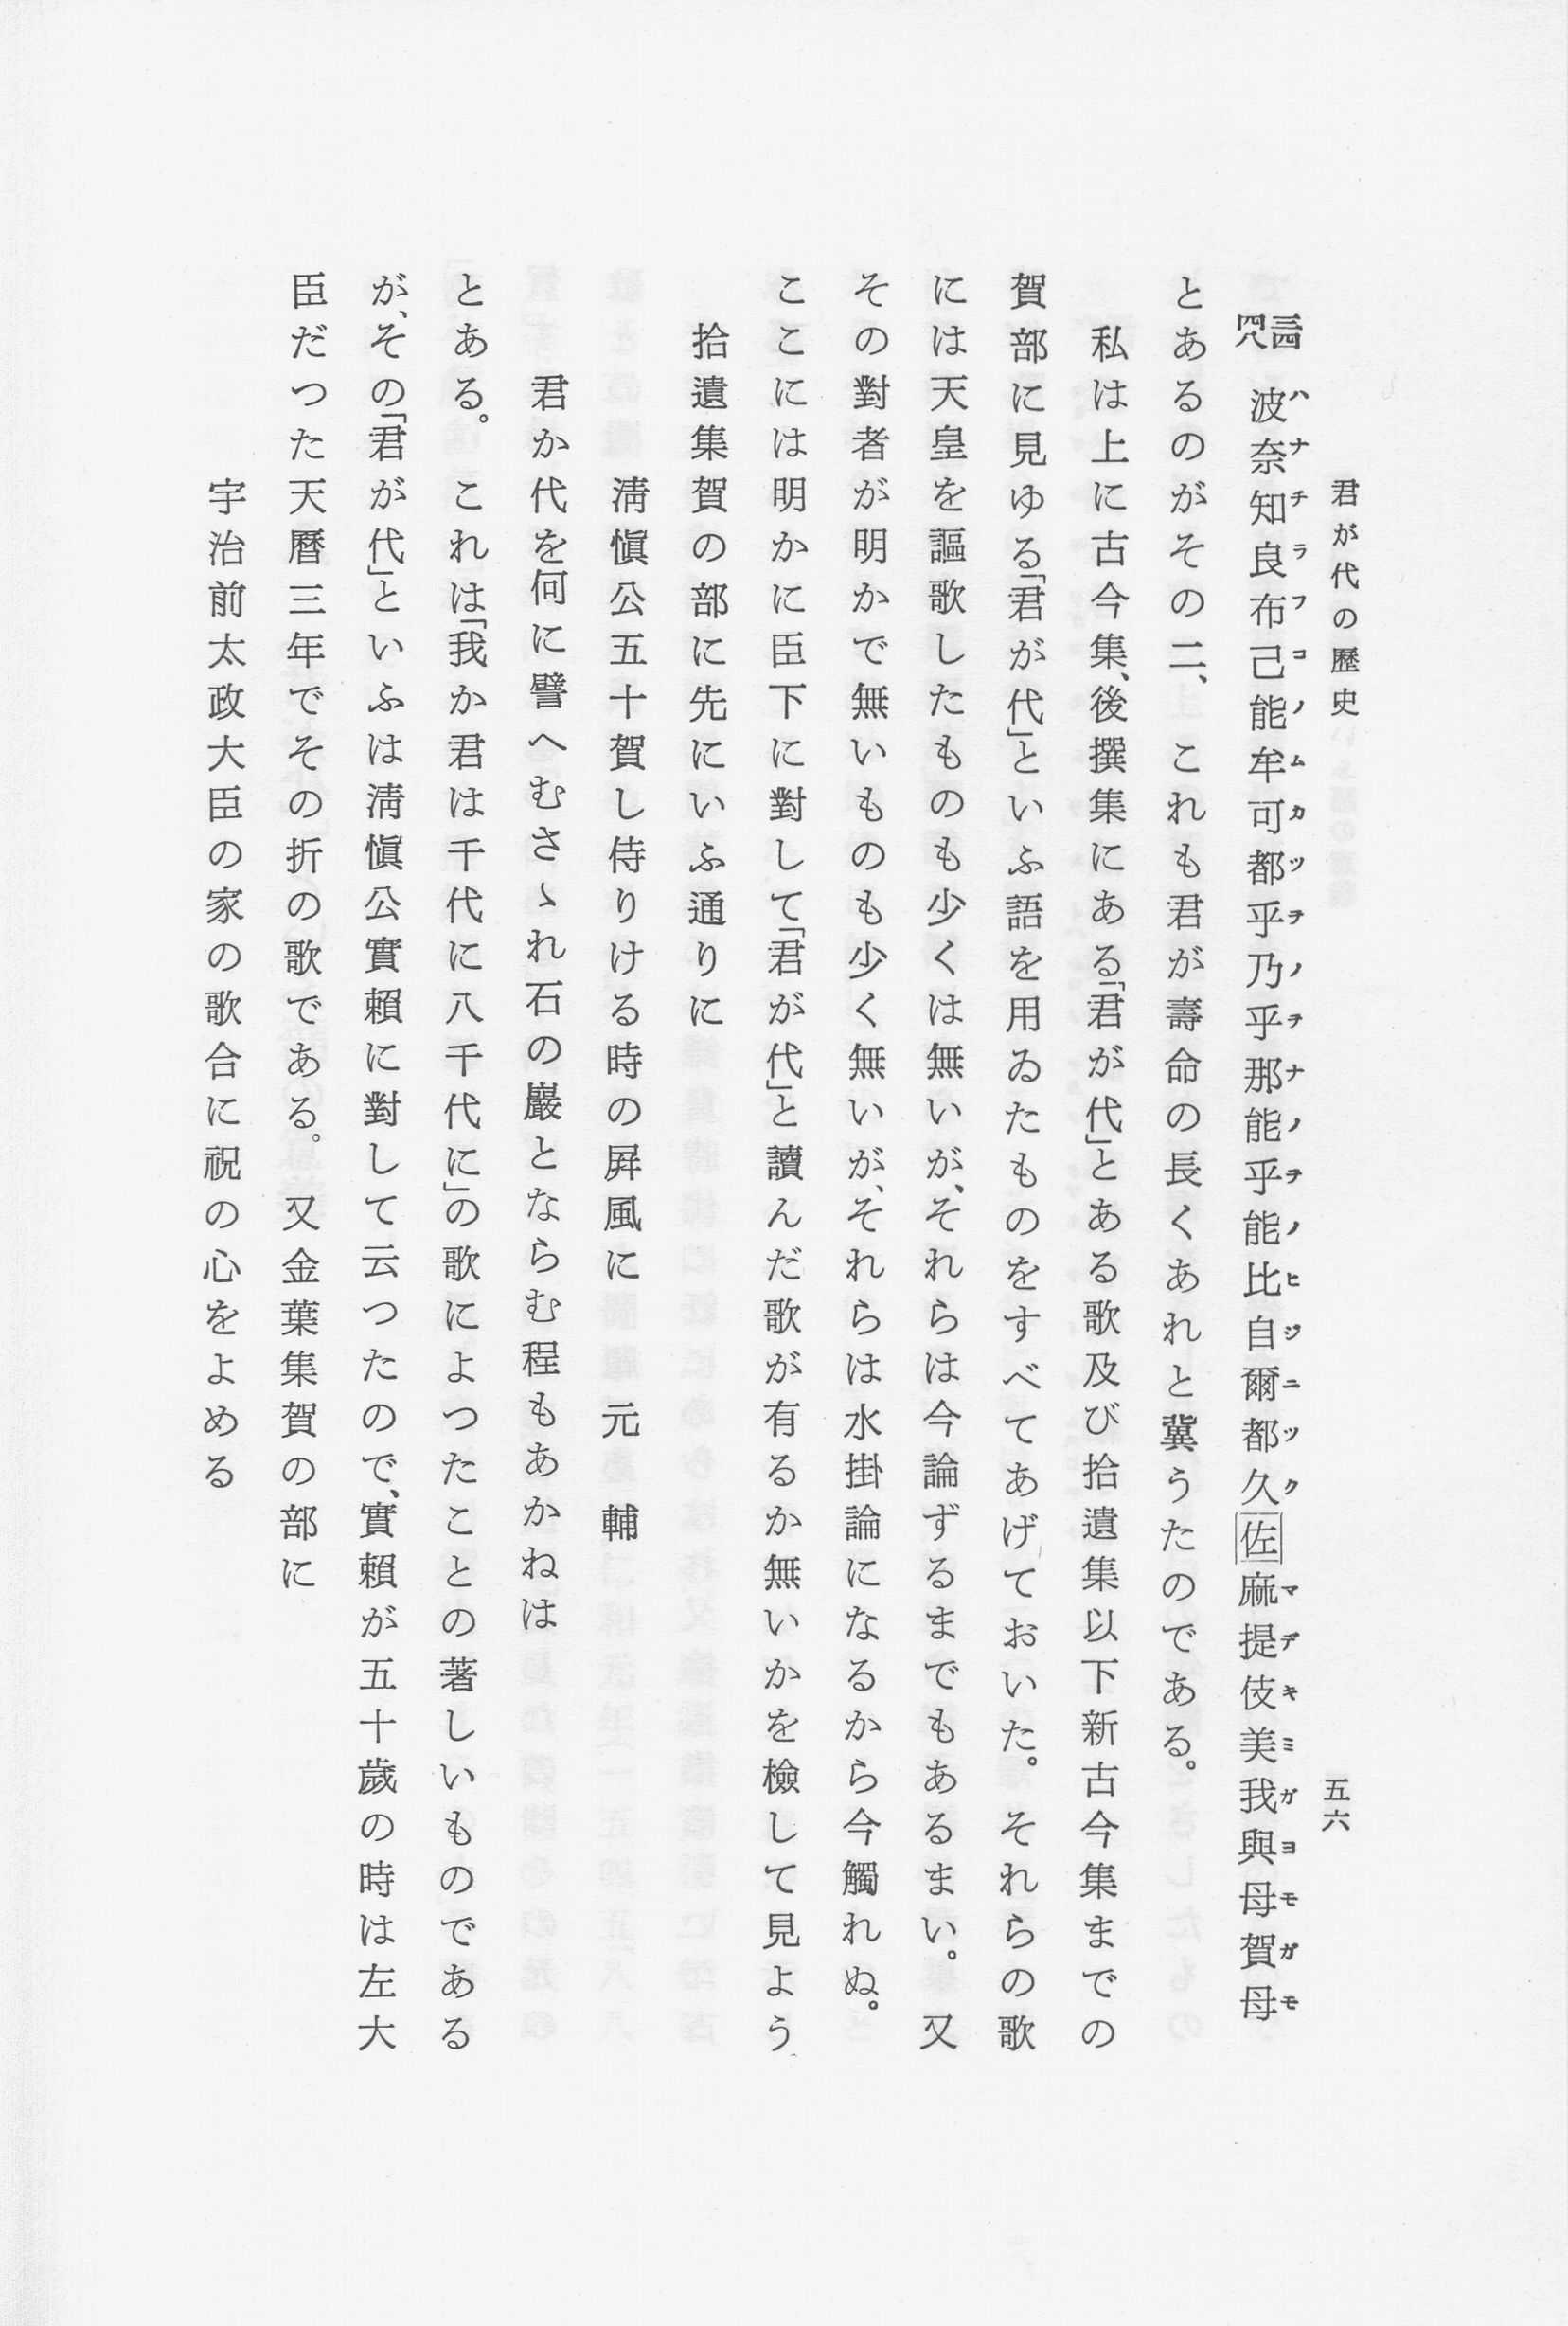 君が代の歴史
五六
三四四八 波奈知良布己能牟可都乎乃乎那能乎能比自爾都久佐麻提伎美我與母賀母
ハナチラフコノムカツヲノヲナノヲノヒジニツクマデキミガヨモガモ
とあるのがその二、これも君が壽命の長くあれと冀うたのである。
私は上に古今集、後撰集にある「君が代」とある歌及び拾遺集以下新古今集までの
賀部に見ゆる「君が代」といふ語を用ゐたものをすべてあげておいた。それらの歌
には天皇を謳歌したものも少くは無いが、それらは今論ずるまでもあるまい。又
その對者が明かで無いものも少く無いが、それらは水掛論になるから今觸れぬ。
ここには明かに臣下に對して「君が代」と讀んだ歌が有るか無いかを檢して見よう、
拾遺集賀の部に先にいふ通りに
淸愼公五十賀し侍りける時の屛風に 元輔
君か代を何に譬へむさゝれ石の巖とならむ程もあかねは
とある。これは「我か君は千代に八千代に」の歌によつたことの著しいものである
が、その「君が代」といふは淸愼公實賴に對して云つたので、實賴が五十歲の時は左大
臣だつた天曆三年でその折の歌である。又金葉集賀の部に
宇治前太政大臣の家の歌合に祝の心をよめる